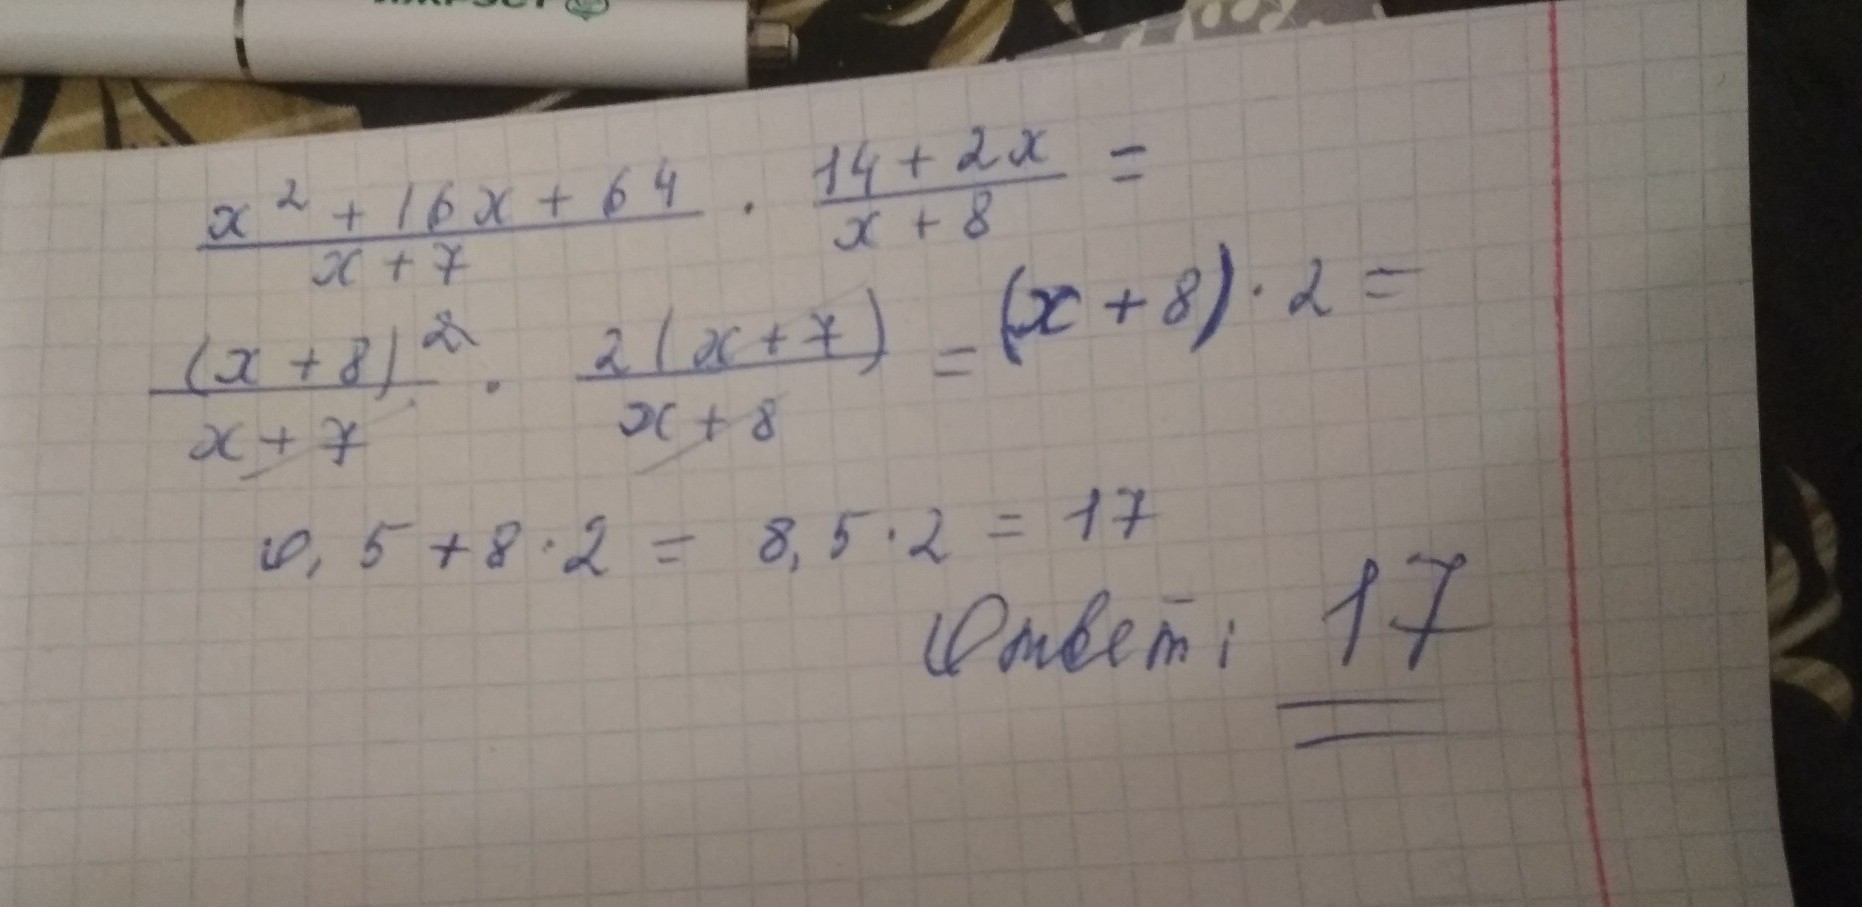 x² + 16x + 64 / x + 7 · 14 + 2x / x + 8 =
(x + 8)² / x + 7 · 2(x + 7) / x + 8 = (x + 8) · 2 =
0,5 + 8 · 2 = 8,5 · 2 = 17
Ответ: 17